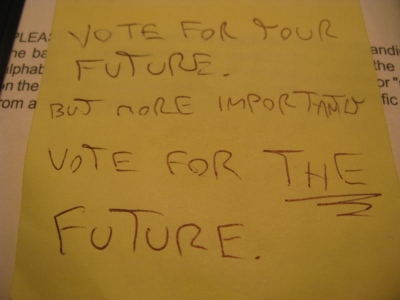 VOTE FOR YOUR
FUTURE.
BUT MORE IMPORTANTLY
VOTE FOR THE
FUTURE.
PLEAS
he ba
alphab
on the
om a
andi
the
or "
fic